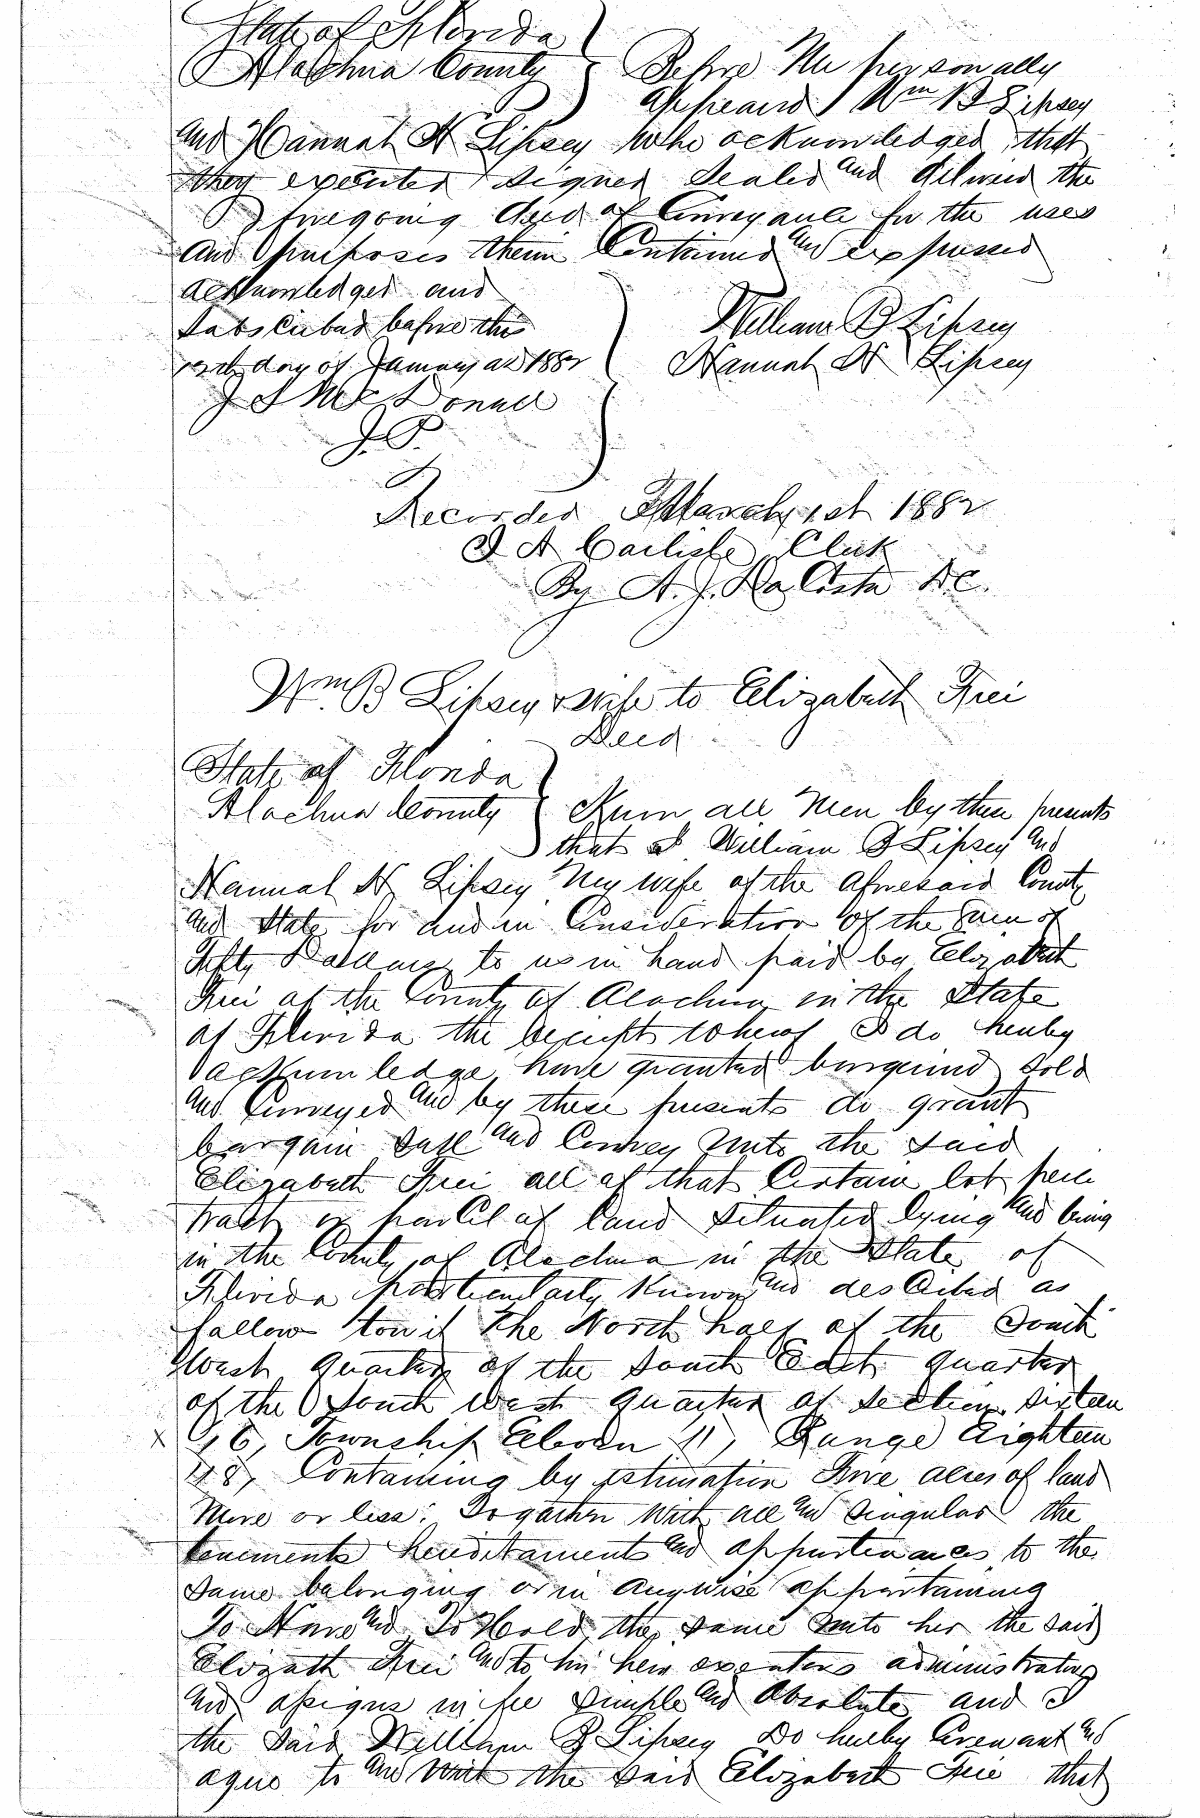 State of Florida
Alachua County } Before Me personally
appeared Wm B Lipsey
and Hannah N Lipsey who acknowledged that
they executed signed sealed and delivered the
foregoing deed of Conveyance for the uses
and purposes therin Contained and expressed
acknowledged and
Subscribed before this
day of January AD 1882
William B Lipsey
Hannah N Lipsey
J S McDonell
J.P.
Recorded March 1st 1882
J A Carlisle Clerk
By A. J. Da Costa D.C.
Wm. B Lipsey & wife to Elizabeth Frei
Deed
State of Florida
Alachua County } Know all Men by these presents
that I William B Lipsey and
Hannah N Lipsey My wife of the Aforesaid County
and State for and in Consideration of the Sum of
Fifty Dollars to us in hand paid by Elizabeth
Frei of the County of Alachua in the State
of Florida the receipt whereof I do hereby
acknowledge have granted bargained sold
and Conveyed and by these presents do grant
bargain sell and Convey Unto the said
Elizabeth Frei all of that Certain lot piece
tract or parcel of land situated lying and being
in the County of Alachua in the State of
Florida particularly known and described as
follow towit The North half of the South
West quarter of the South East quarter
of the South West quarter of Section Sixteen
x 16, Township Eleven 11, Range Eighteen
18, Containing by estimation Five acres of land
More or less: Togather with all and singular the
tenements hereditaments and appurtenances to the
same belonging or in anywise appertaining
To Have and To Hold the same unto her the said
Elizath Frei and to his heirs executors administrators
and assigns in fee simple and Absolute and I
the said William B Lipsey Do hereby Covenant and
agree to and with the said Elizabeth Frei that